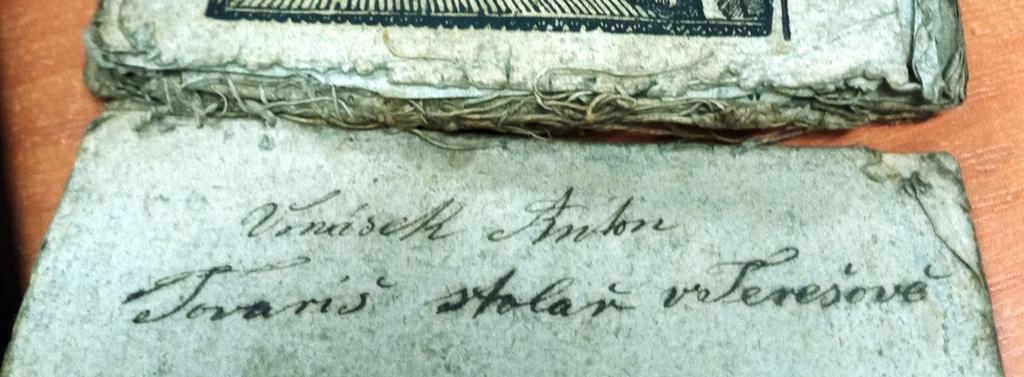 Vonásek Anton
Tovariš stolař v Terešově